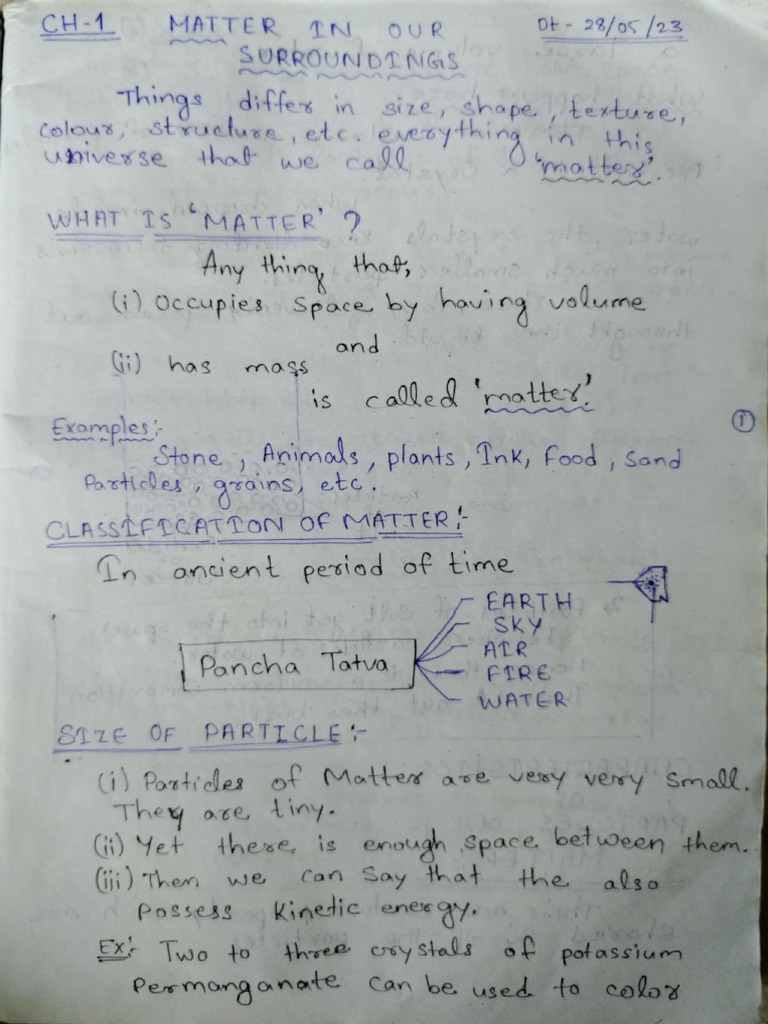 CH-1 MATTER IN OUR Dt - 28/05/23
SURROUNDINGS
Things differ in size, shape, texture,
colour, structure, etc. everything in this
universe that we call 'matter'.
WHAT IS 'MATTER' ?
Any thing that,
(i) occupies space by having volume
and
(ii) has mass
is called 'matter'.
Examples:-
Stone, Animals, plants, Ink, Food, Sand
Particles, grains, etc.
①
CLASSIFICATION OF MATTER:-
In ancient period of time
EARTH
SKY
Pancha Tatva AIR
FIRE
WATER
SIZE OF PARTICLE:-
(i) Particles of Matter are very very small.
They are tiny.
(ii) Yet there is enough space between them.
(iii) Then we can Say that the also
Possess Kinetic energy.
Ex:- Two to three crystals of potassium
Permanganate can be used to color